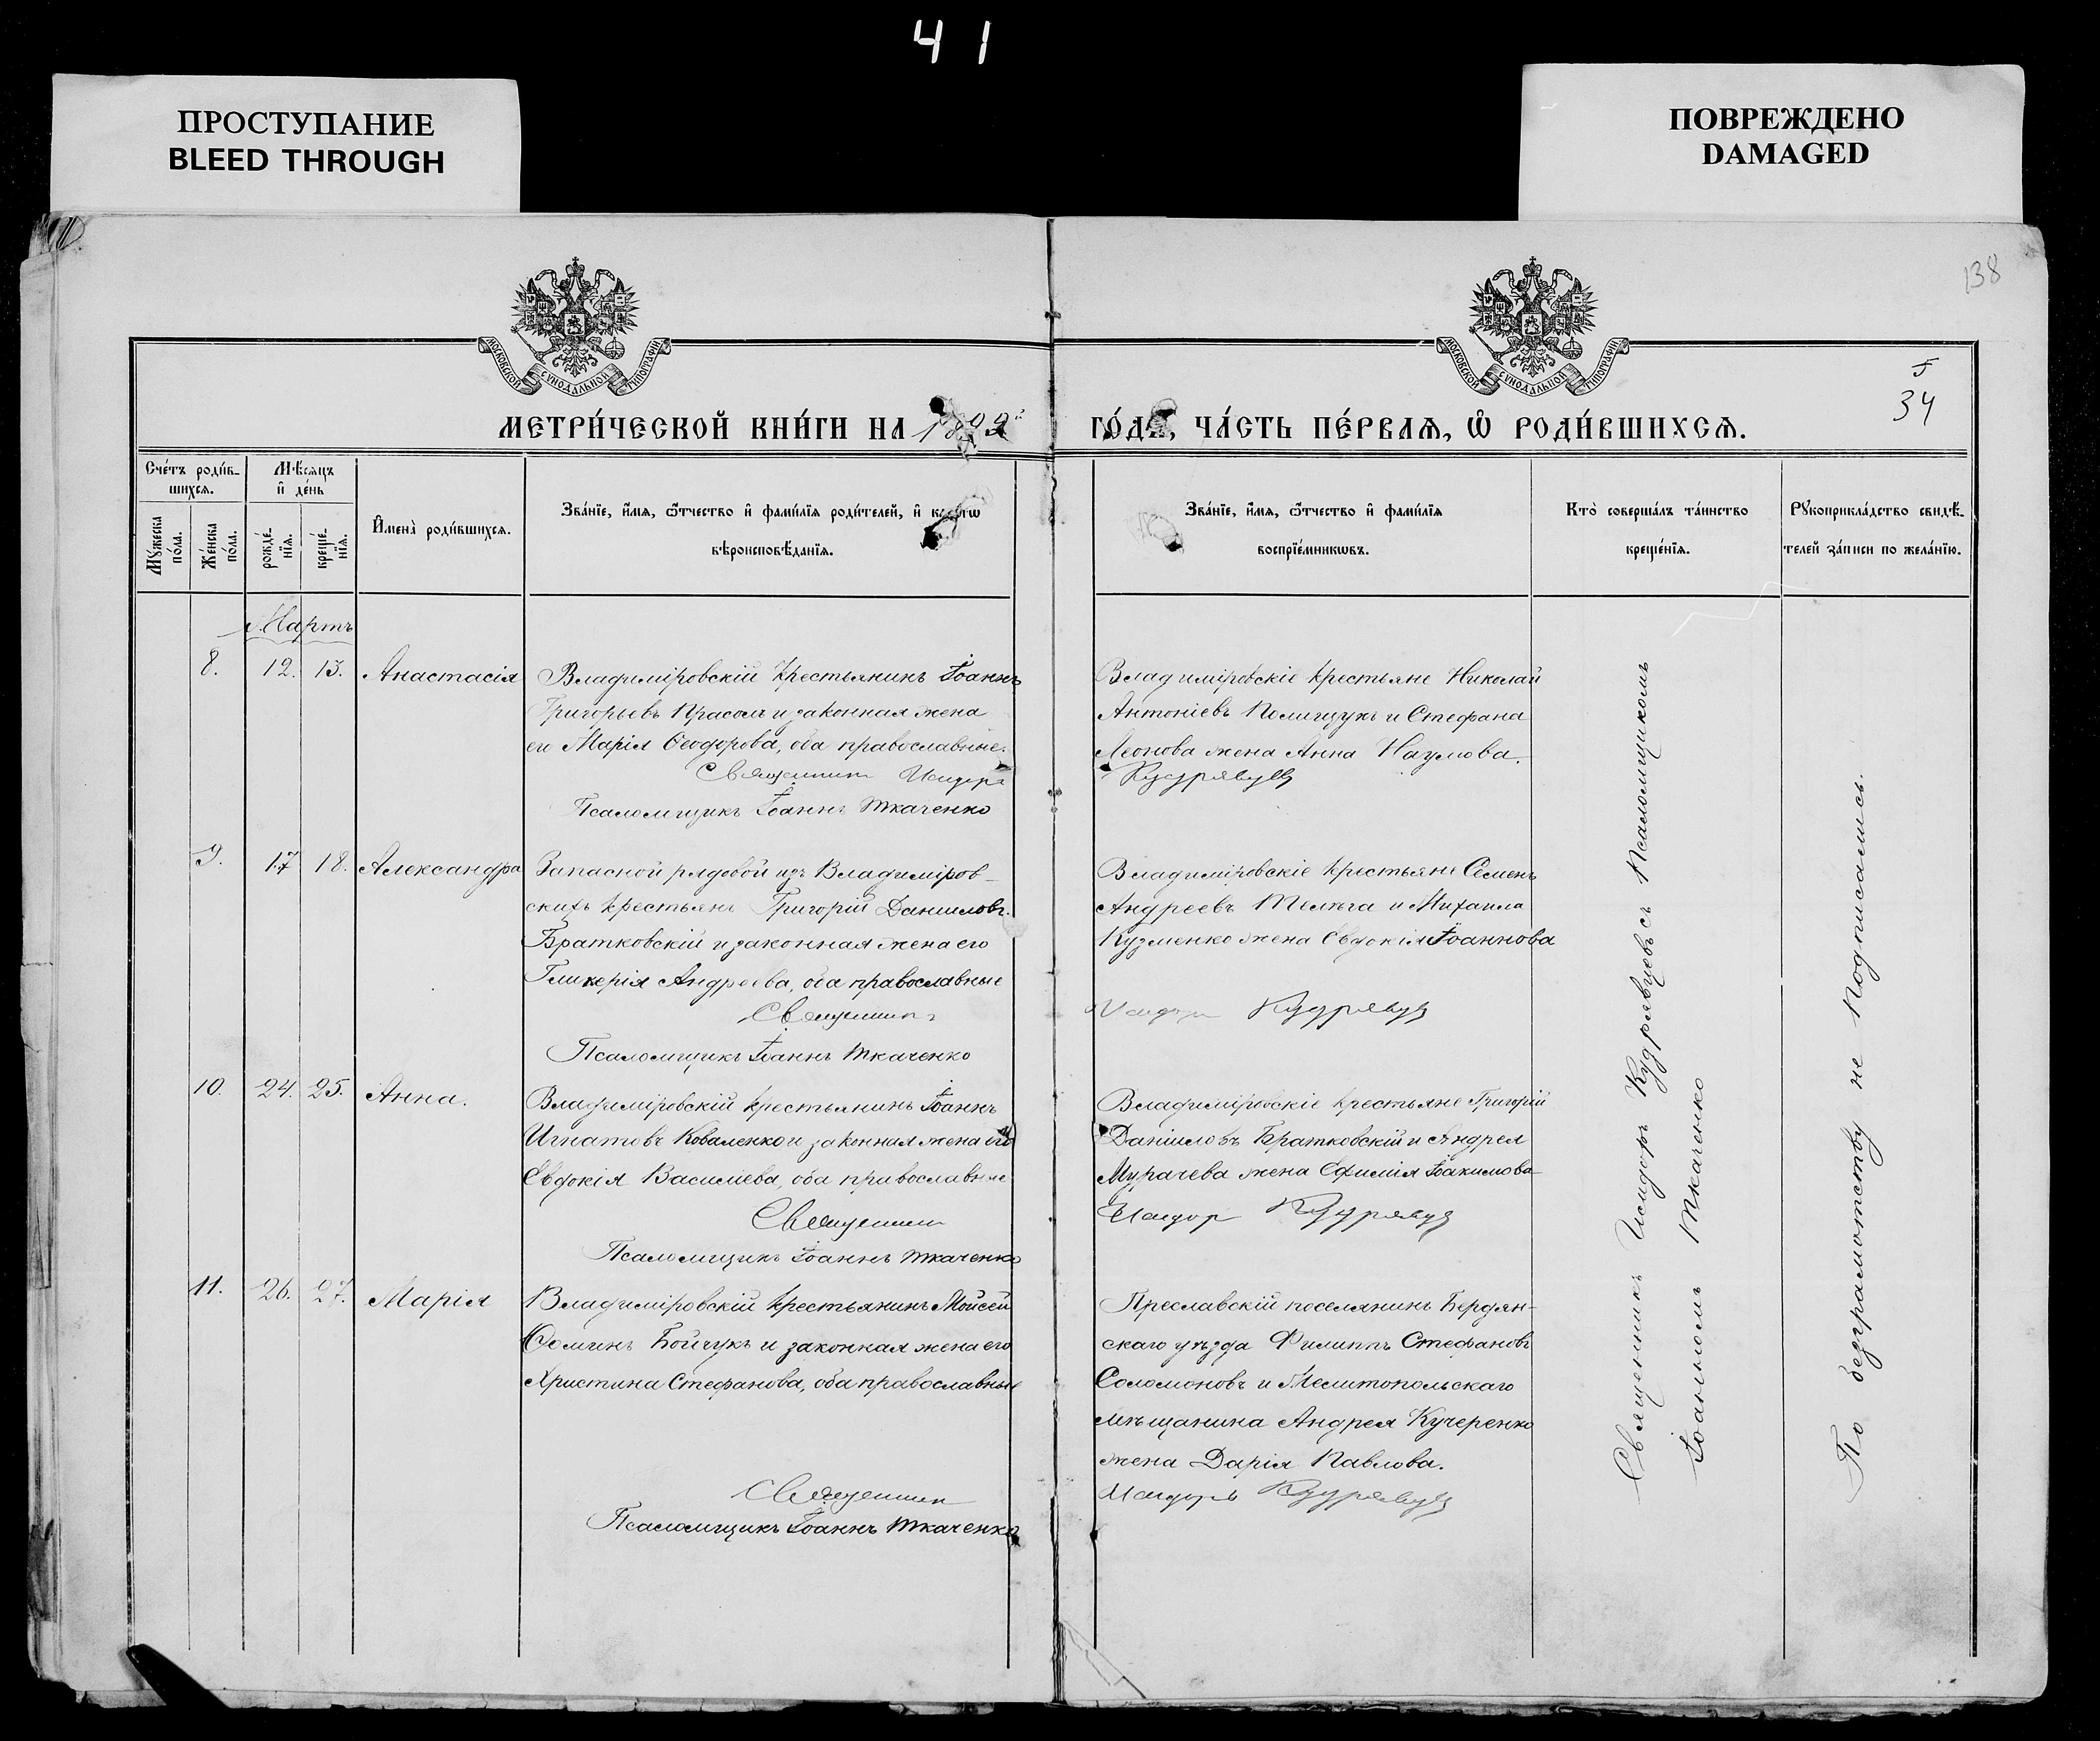 41
ПРОСТУПАНИЕ
BLEED THROUGH
ПОВРЕЖДЕНО
DAMAGED
138
МОСКОВСКОЙ СѴНОДАЛЬНОЙ ТИПОГРАФІИ
МОСКОВСКОЙ СѴНОДАЛЬНОЙ ТИПОГРАФІИ
34
МЕТРИ́ЧЕСКОЙ КНИ́ГИ НА
ЧА́СТЬ ПЕ́РВАѦ, Ѽ РОДИ́ВШИХСѦ.
Сче́тъ роди́в-
шихся.
Мѣ́сяцъ
и҆ де́нь
Мꙋ́жеска
по́ла.
Же́нска
по́ла.
рожде́-
нїѧ.
креще́-
нїѧ.
И҆мена̀ роди́вшихсѧ.
Зва́нїе, и҆́мѧ, ѻ҆́тчество и҆ фами́лїѧ роди́телей, и҆
вѣроисповѣ́данїѧ.
Зва́нїе, и҆́мѧ, ѻ҆́тчество и҆ фами́лїѧ
воспрїе́мникѡвъ.
Кто̀ соверша́лъ та́инство
креще́нїѧ.
Рꙋкоприкла́дство свидѣ́-
телей за́писи по жела́нїю.
Мартъ
8. 12. 13. Анастасія
Владиміровскій крестьянинъ Іоаннъ
Григорьевъ Прасолъ и законная жена
его Марія Ѳеодорова, оба православные.
Священникъ Исидоръ
Псаломщикъ Іоаннъ Ткаченко
Владиміровскіе крестьяне Николай
Антоніевъ Полищукъ и Стефана
Леонова жена Анна Наумова.
Кудрявцевъ
9. 17 18. Александра
Запасной рядовой изъ Владиміров-
скихъ крестьянъ Григорій Даниловъ
Братковскій и законная жена его
Гликерія Андреева, оба православные
Священникъ
Псаломщикъ Іоаннъ Ткаченко
Владиміровскіе крестьяне Семенъ
Андреевъ Телѣга и Михаила
Кузменко жена Евдокія Іоаннова
Исидоръ Кудрявцевъ
10. 24. 25. Анна.
Владиміровскій крестьянинъ Іоаннъ
Игнатовъ Коваленко и законная жена его
Евдокія Василіева, оба православные
Священникъ
Псаломщикъ Іоаннъ Ткаченко
Владиміровскіе крестьяне Григорій
Даніиловъ Братковскій и Андрея
Мурачева жена Ефимія Іоакимова
Исидоръ Кудрявцевъ
11. 26. 27. Марія
Владиміровскій крестьянинъ Мойсей
Ѳоминъ Бойчукъ и законная жена его
Христина Стефанова, оба православные
Священникъ
Псаломщикъ Іоаннъ Ткаченко
Преславскій поселянинъ Бердян-
скаго уѣзда Филиппъ Стефановъ
Соломоновъ и Мелитопольскаго
мѣщанина Андрея Кучеренко
жена Дарія Павлова.
Исидоръ Кудрявцевъ
Священникъ Исидоръ Кудрявцевъ съ Псаломщикомъ
Іоанномъ Ткаченко
По безграмотству не подписались.